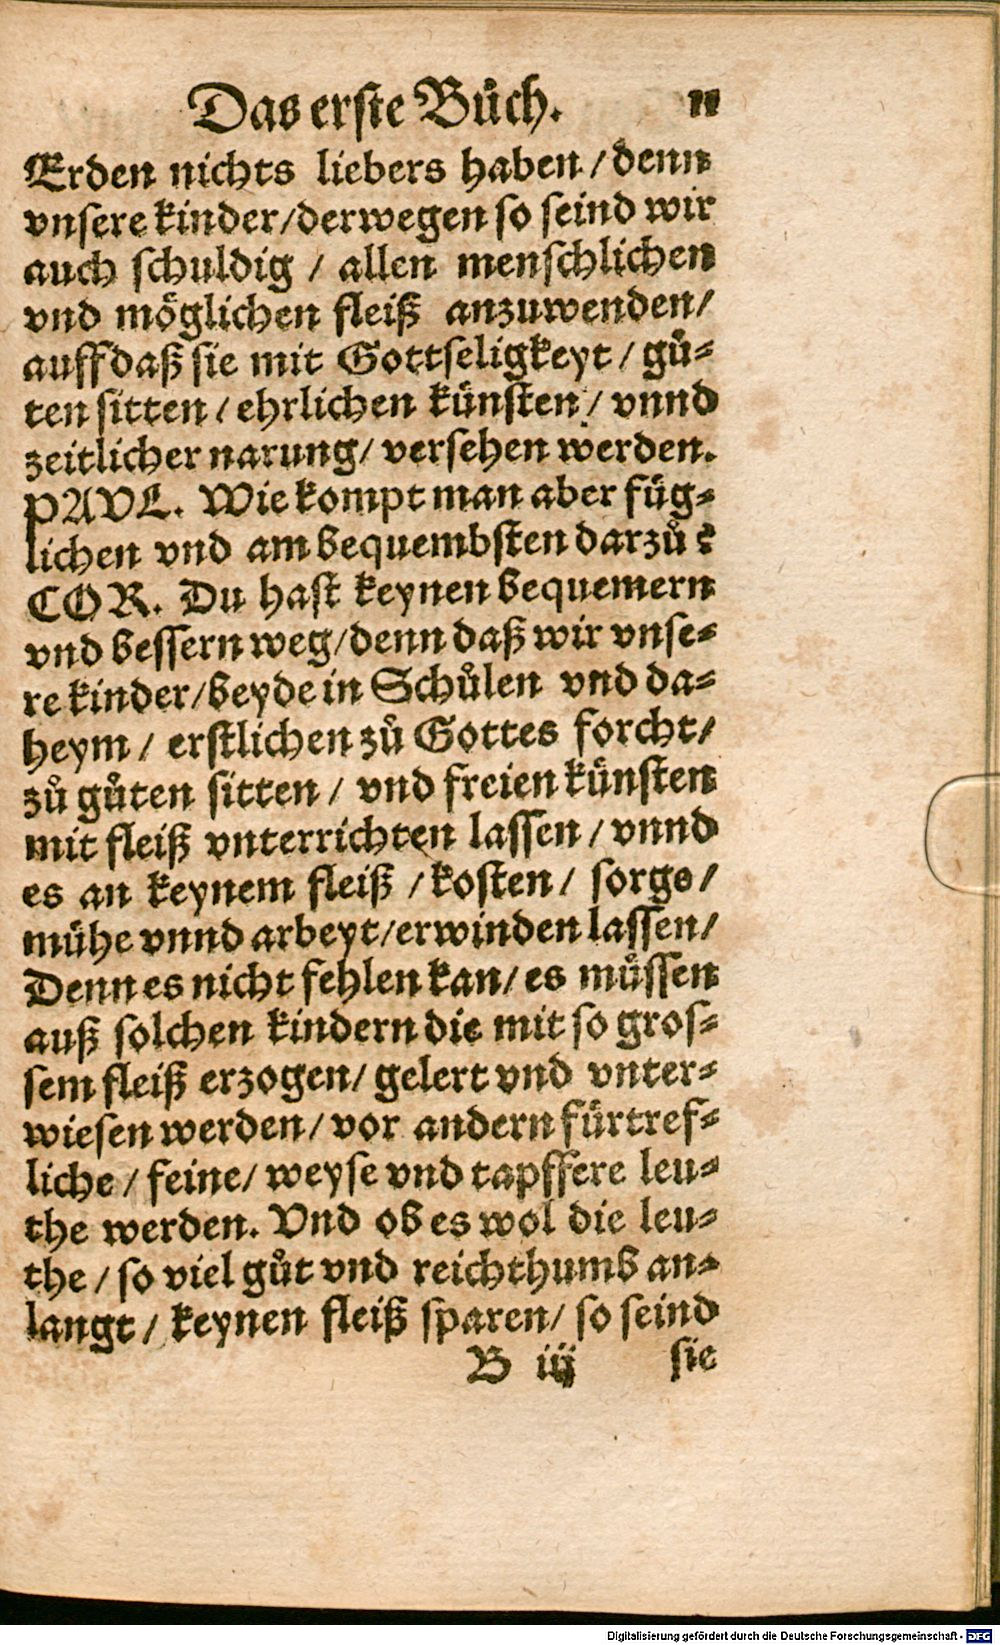 Das erste Bůch. 11
Erden nichts liebers haben / denn
vnsere kinder / derwegen so seind wir
auch schuldig / allen menschlichen
vnd möglichen fleiß anzuwenden /
auffdaß sie mit Gottseligkeyt / gů-
ten sitten / ehrlichen künsten / vnnd
zeitlicher narung / versehen werden.
PAVL. Wie kompt man aber füg-
lichen vnd am bequembsten darzů?
COR. Du hast keynen bequemern
vnd bessern weg / denn daß wir vnse-
re kinder / beyde in Schůlen vnd da-
heym / erstlichen zů Gottes forcht /
zů gůten sitten / vnd freien künsten
mit fleiß vnterrichten lassen / vnnd
es an keynem fleiß / kosten / sorge /
mühe vnnd arbeyt / erwinden lassen /
Denn es nicht fehlen kan / es müssen
auß solchen kindern die mit so gros-
sem fleiß erzogen / gelert vnd vnter-
wiesen werden / vor andern fürtref-
liche / feine / weyse vnd tapffere leu-
the werden. Vnd ob es wol die leu-
the / so viel gůt vnd reichthumb an-
langt / keynen fleiß sparen / so seind
B iij sie
Digitalisierung gefördert durch die Deutsche Forschungsgemeinschaft - DFG